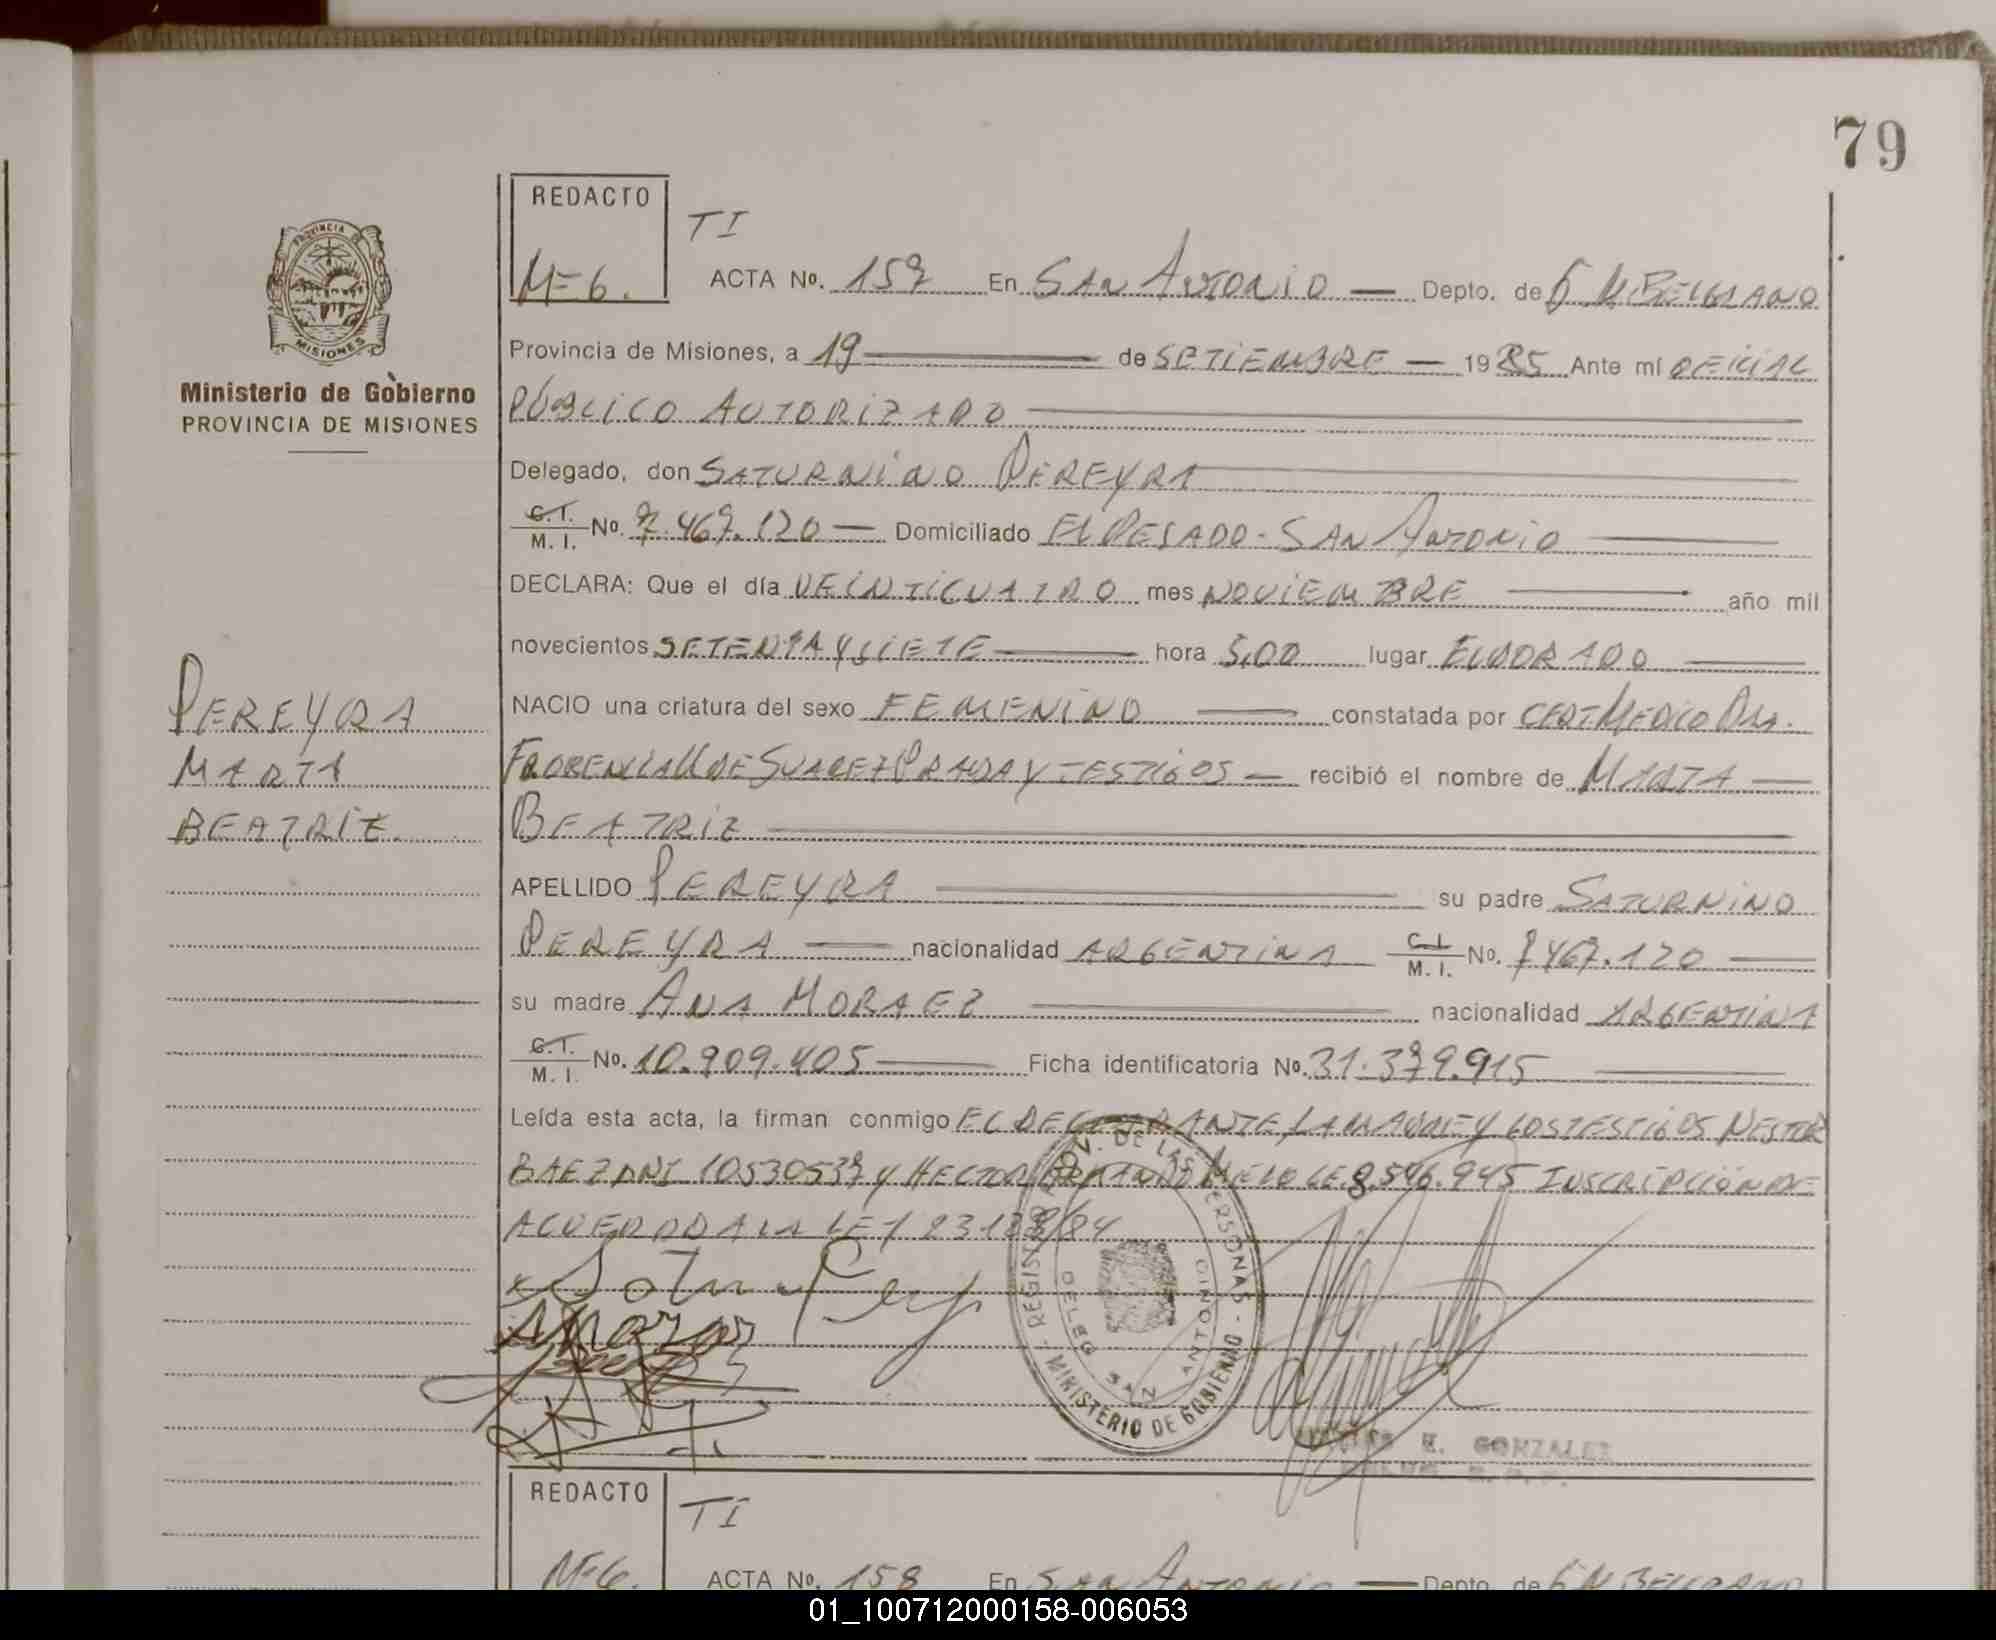 79
REDACTO
TI
M=6.
ACTA No. 157 En SAN ANTONIO — Depto. de G M. BELGRANO
PROVINCIA DE
MISIONES
Provincia de Misiones, a 19 — de SETIEMBRE — 1985 Ante mí OFICIAL
Ministerio de Gobierno
PROVINCIA DE MISIONES
PÚBLICO AUTORIZADO
Delegado, don SATURNINO PEREYRA
C.I. / M.I. No. 7.467.120 — Domiciliado EL PESADO - SAN ANTONIO
DECLARA: Que el día VEINTICUATRO mes NOVIEMBRE — año mil
novecientos SETENTA Y SIETE — hora 5,00 lugar ELDORADO
PEREYRA
MARTA
BEATRIZ.
NACIO una criatura del sexo FEMENINO — constatada por CERT MEDICO DRA.
FLORENCIA M DE SUAREZ PRAWDA Y TESTIGOS — recibió el nombre de MARTA —
BEATRIZ
APELLIDO PEREYRA — su padre SATURNINO
PEREYRA — nacionalidad ARGENTINA C.I. / M.I. No. 7467.120
su madre ANA MORAEZ — nacionalidad ARGENTINA
C.I. / M.I. No. 10.909.405 — Ficha identificatoria No. 31.379.915
Leída esta acta, la firman conmigo EL DECLARANTE LA MADRE Y LOS TESTIGOS NESTOR
BAEZ DNI 10530537 Y HECTOR ARMANDO MELO LE 8.546.945 INSCRIPCIÓN DE
ACUERDO A LA LEY 23128/84
REGISTRO PROV. DE LAS PERSONAS - MINISTERIO DE GOBIERNO
DELEG SAN ANTONIO
E. GONZALEZ
REDACTO
TI
M=6.
ACTA No. 158 En SAN ANTONIO — Depto. de G M BELGRANO
01_100712000158-006053